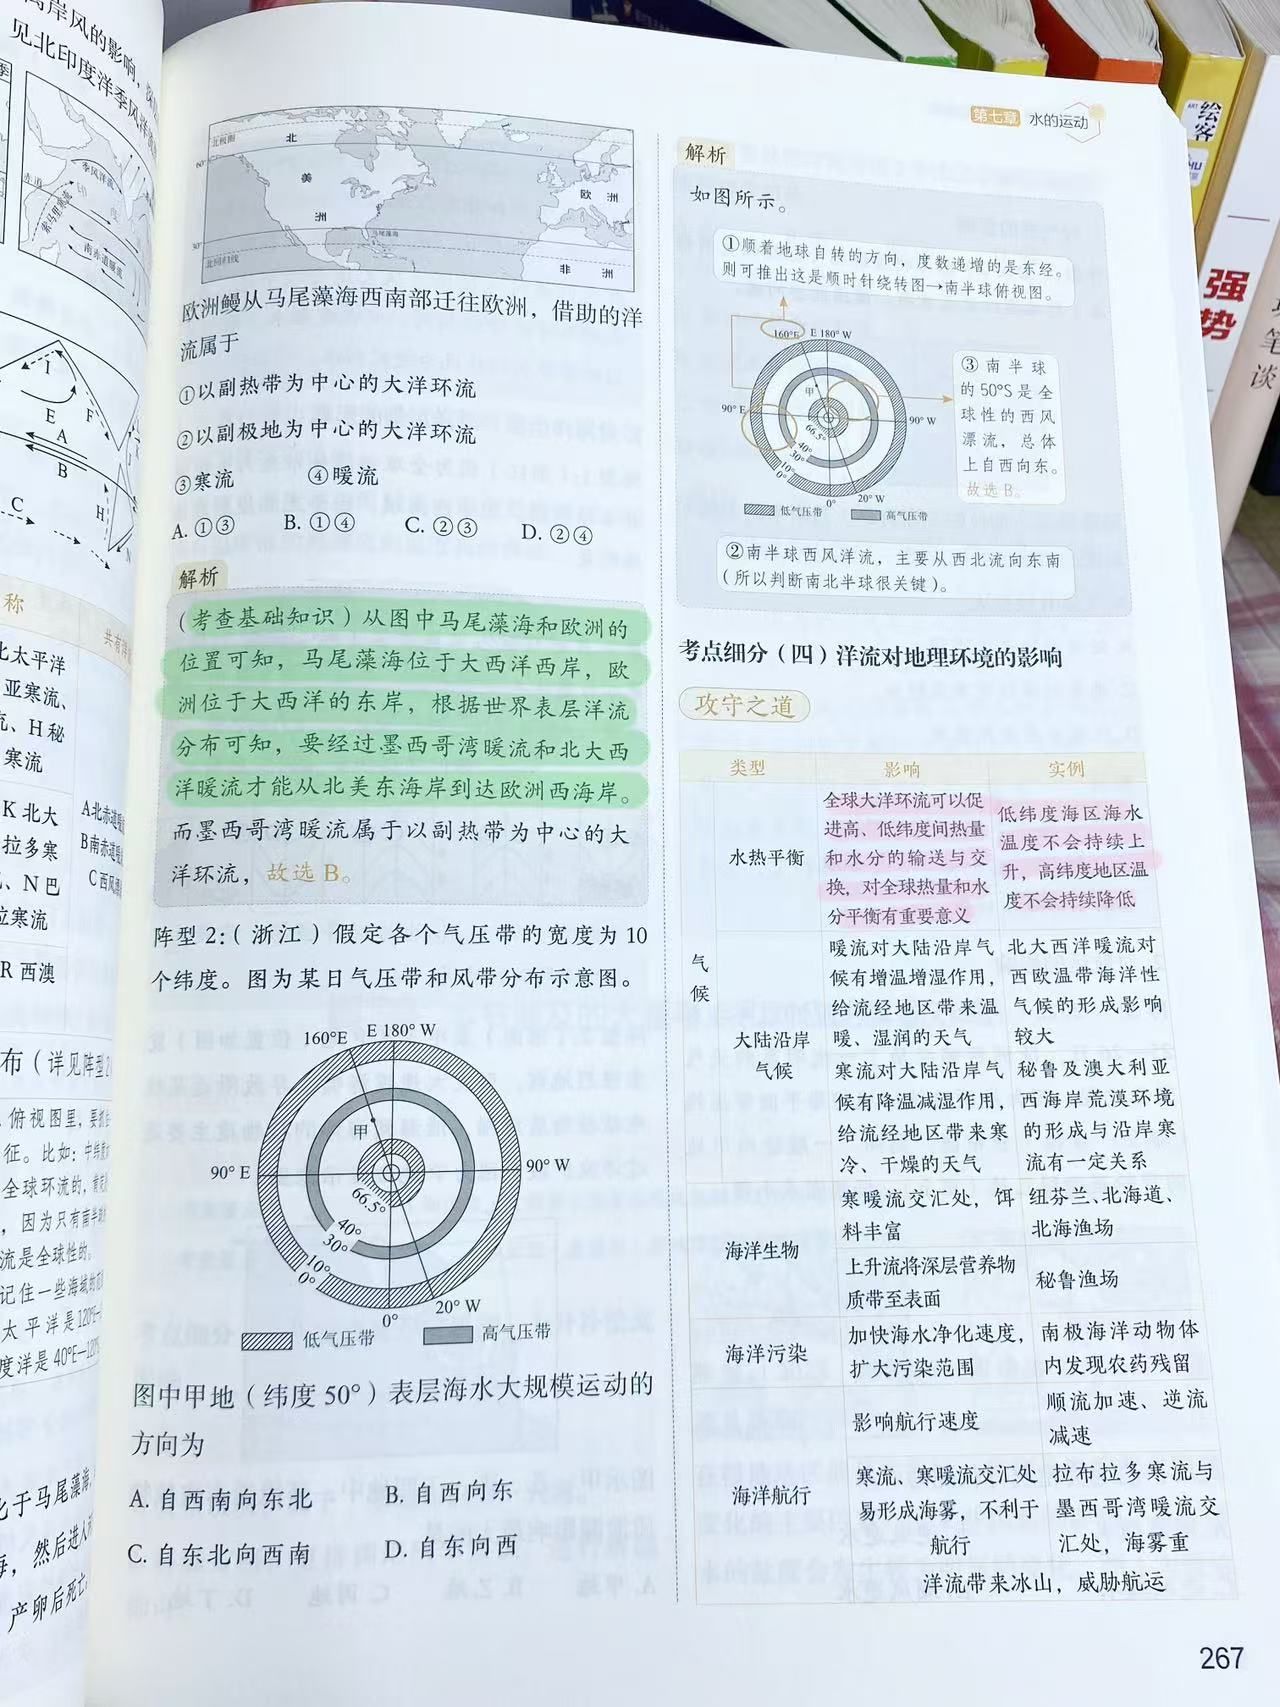 离岸风的影响，
见北印度洋季风洋
季风洋流
赤道
索马里寒流
南赤道暖流
I
E
F
A
B
C
H
N
称
共有洋
北太平洋
亚寒流、
流、H 秘
寒流
K 北大
拉多寒
、N 巴
拉寒流
R 西澳
A北赤道暖
B南赤道暖
C 西风漂
布（详见阵型2
俯视图里，要抓住
征。比如：中纬度
全球环流的，
，因为只有南半球
流是全球性的。
记住一些海域的
太平洋是120°E—
度洋是 40°E—120°
化于马尾藻海，
海，然后进入
产卵后死亡。
第七章 水的运动
北极圈
60°
30°
北回归线
北
美
洲
马尾藻海
欧 洲
非 洲
欧洲鳗从马尾藻海西南部迁往欧洲，借助的洋
流属于
①以副热带为中心的大洋环流
②以副极地为中心的大洋环流
③寒流 ④暖流
A. ①③ B. ①④ C. ②③ D. ②④
解析
（考查基础知识）从图中马尾藻海和欧洲的
位置可知，马尾藻海位于大西洋西岸，欧
洲位于大西洋的东岸，根据世界表层洋流
分布可知，要经过墨西哥湾暖流和北大西
洋暖流才能从北美东海岸到达欧洲西海岸。
而墨西哥湾暖流属于以副热带为中心的大
洋环流，故选 B。
阵型 2：（浙江）假定各个气压带的宽度为 10
个纬度。图为某日气压带和风带分布示意图。
160°E E 180° W
甲
90° E 90° W
66.5°
40°
30°
10°
0°
20° W
0°
低气压带 高气压带
图中甲地（纬度 50°）表层海水大规模运动的
方向为
A. 自西南向东北 B. 自西向东
C. 自东北向西南 D. 自东向西
解析
如图所示。
①顺着地球自转的方向，度数递增的是东经。
则可推出这是顺时针绕转图→南半球俯视图。
160°E E 180° W
甲
90° E 90° W
66.5°
40°
30°
10°
0°
20° W
0°
低气压带 高气压带
③南半球
的 50°S 是全
球性的西风
漂流，总体
上自西向东。
故选 B。
②南半球西风洋流，主要从西北流向东南
（所以判断南北半球很关键）。
考点细分（四）洋流对地理环境的影响
攻守之道
类型 影响 实例
气候
水热平衡
全球大洋环流可以促
进高、低纬度间热量
和水分的输送与交
换，对全球热量和水
分平衡有重要意义
低纬度海区海水
温度不会持续上
升，高纬度地区温
度不会持续降低
大陆沿岸
气候
暖流对大陆沿岸气
候有增温增湿作用，
给流经地区带来温
暖、湿润的天气
北大西洋暖流对
西欧温带海洋性
气候的形成影响
较大
寒流对大陆沿岸气
候有降温减湿作用，
给流经地区带来寒
冷、干燥的天气
秘鲁及澳大利亚
西海岸荒漠环境
的形成与沿岸寒
流有一定关系
海洋生物
寒暖流交汇处，饵
料丰富
纽芬兰、北海道、
北海渔场
上升流将深层营养物
质带至表面
秘鲁渔场
海洋污染
加快海水净化速度，
扩大污染范围
南极海洋动物体
内发现农药残留
海洋航行
影响航行速度
顺流加速、逆流
减速
寒流、寒暖流交汇处
易形成海雾，不利于
航行
拉布拉多寒流与
墨西哥湾暖流交
汇处，海雾重
洋流带来冰山，威胁航运
267
绘客
强势
笔谈